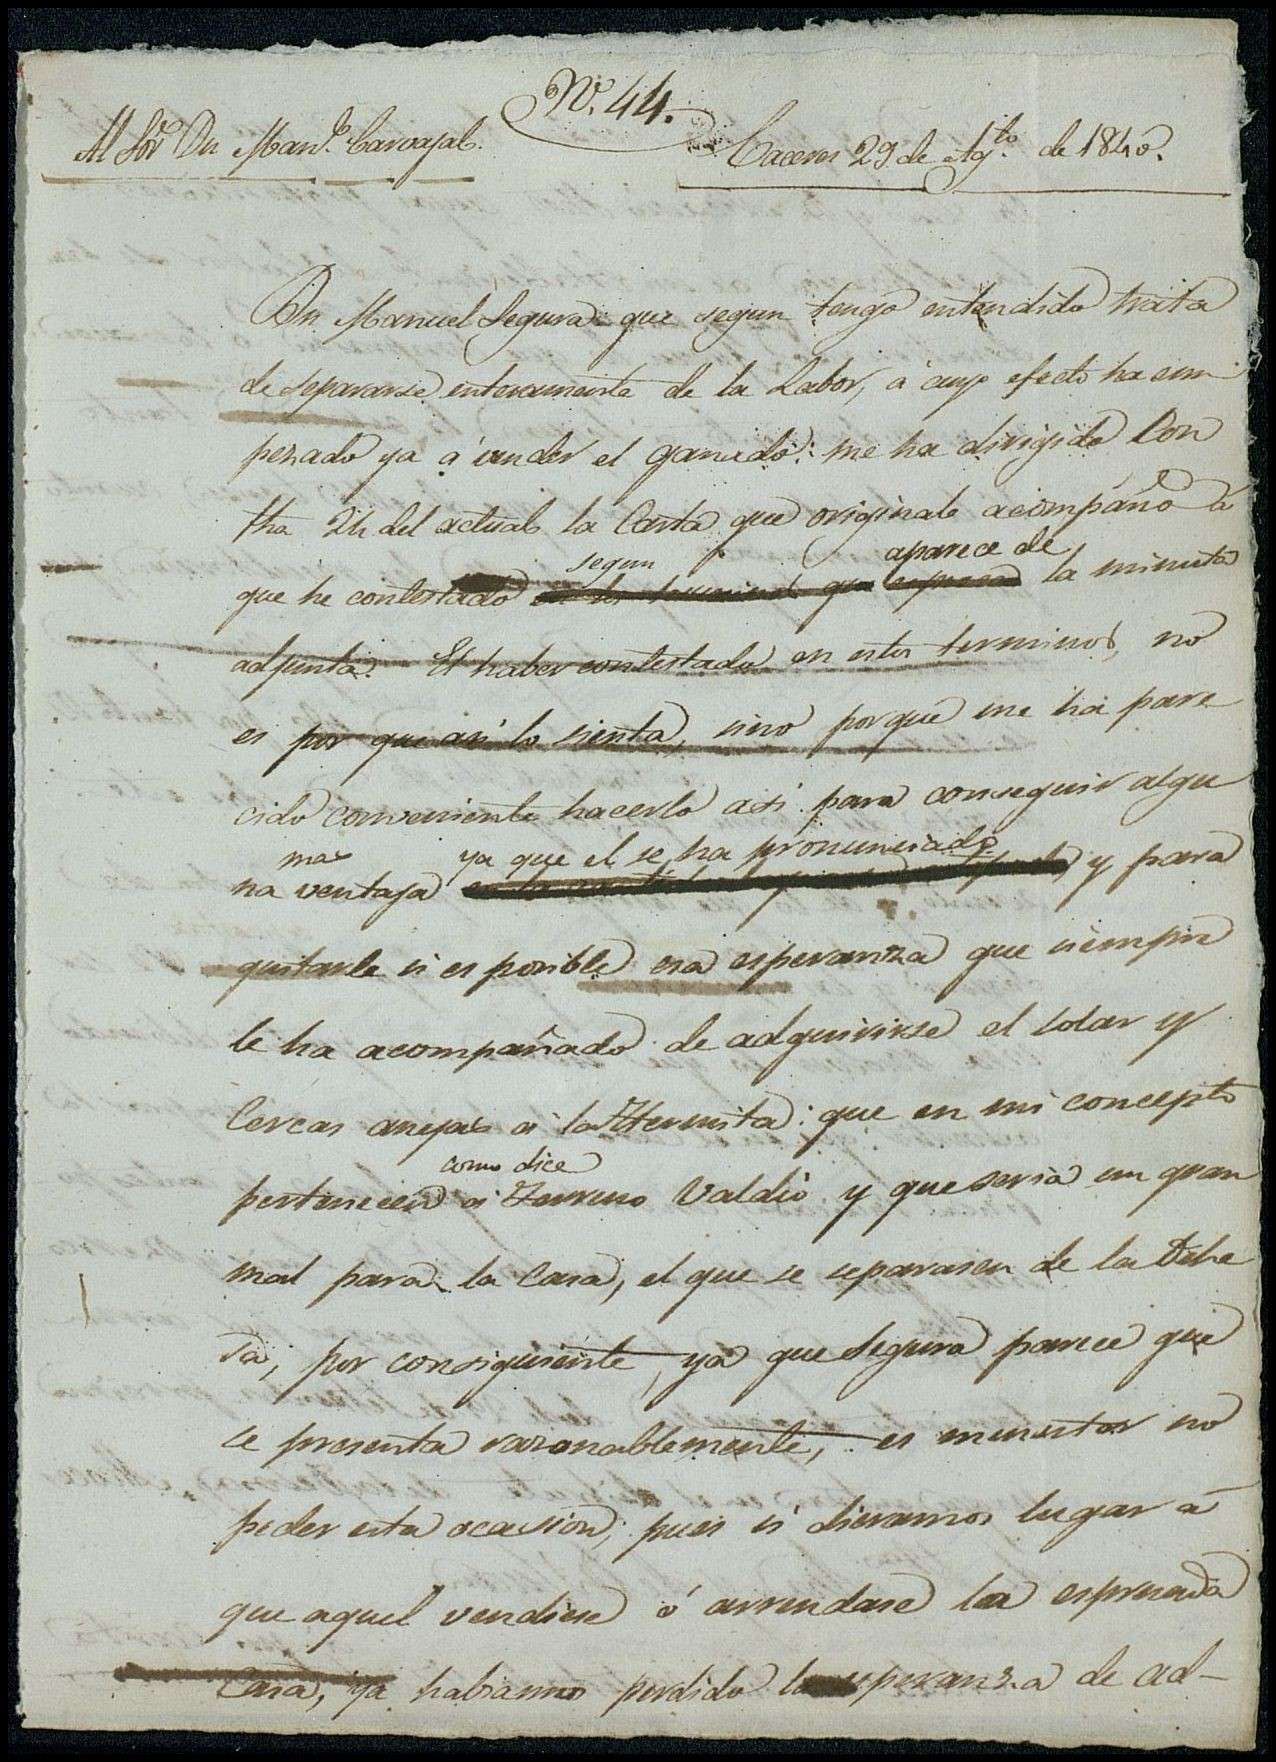 Nº. 44.
Al Sor. Dn Manl. Carvajal.
Caceres 29 de Agto. de 1840.
Dn Manuel Segura que segun tengo entendido trata
de separarse enteramente de la Labor, á cuyo efecto ha em
pezado ya á vender el ganado: me ha dirigido con
fha 24 del actual la Carta que original acompaño á
segun aparece de
que he contestado en los terminos que espresa la minuta
adjunta. El haber contestado en estos terminos, no
es por que asi lo sienta, sino porque me ha pare
cido conveniente hacerlo asi para conseguir algu
mas ya que el se ha pronunciado
na ventaja y para
quitarle si es posible esa esperanza que siempre
le ha acompañado de adquirirse el solar y
Cercas anejas á la Hermita: que en mi concepto
como dice
pertenecen á Terreno Valdio y que seria un gran
mal para la Casa, el que se separasen de la Dehe
sa, por consiguiente, ya que Segura parece que
se presenta razonablemente, es menester no
peder esta ocasion, pues si dieramos lugar á
que aquel vendiese ó arrendase la espresada
Casa, ya habiamos perdido la esperanza de ad-